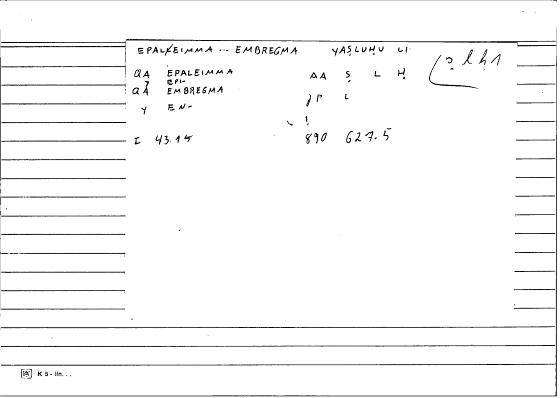 EPALEIMMA ... EMBREGMA YAṢLUḤU LI
ṣ lḥ 1
QA EPALEIMMA AA Ṣ L Ḥ
7 EPI-
QA EMBREGMA P L
Y EN-
I 43.15 890 627.5
K 5 - lin...